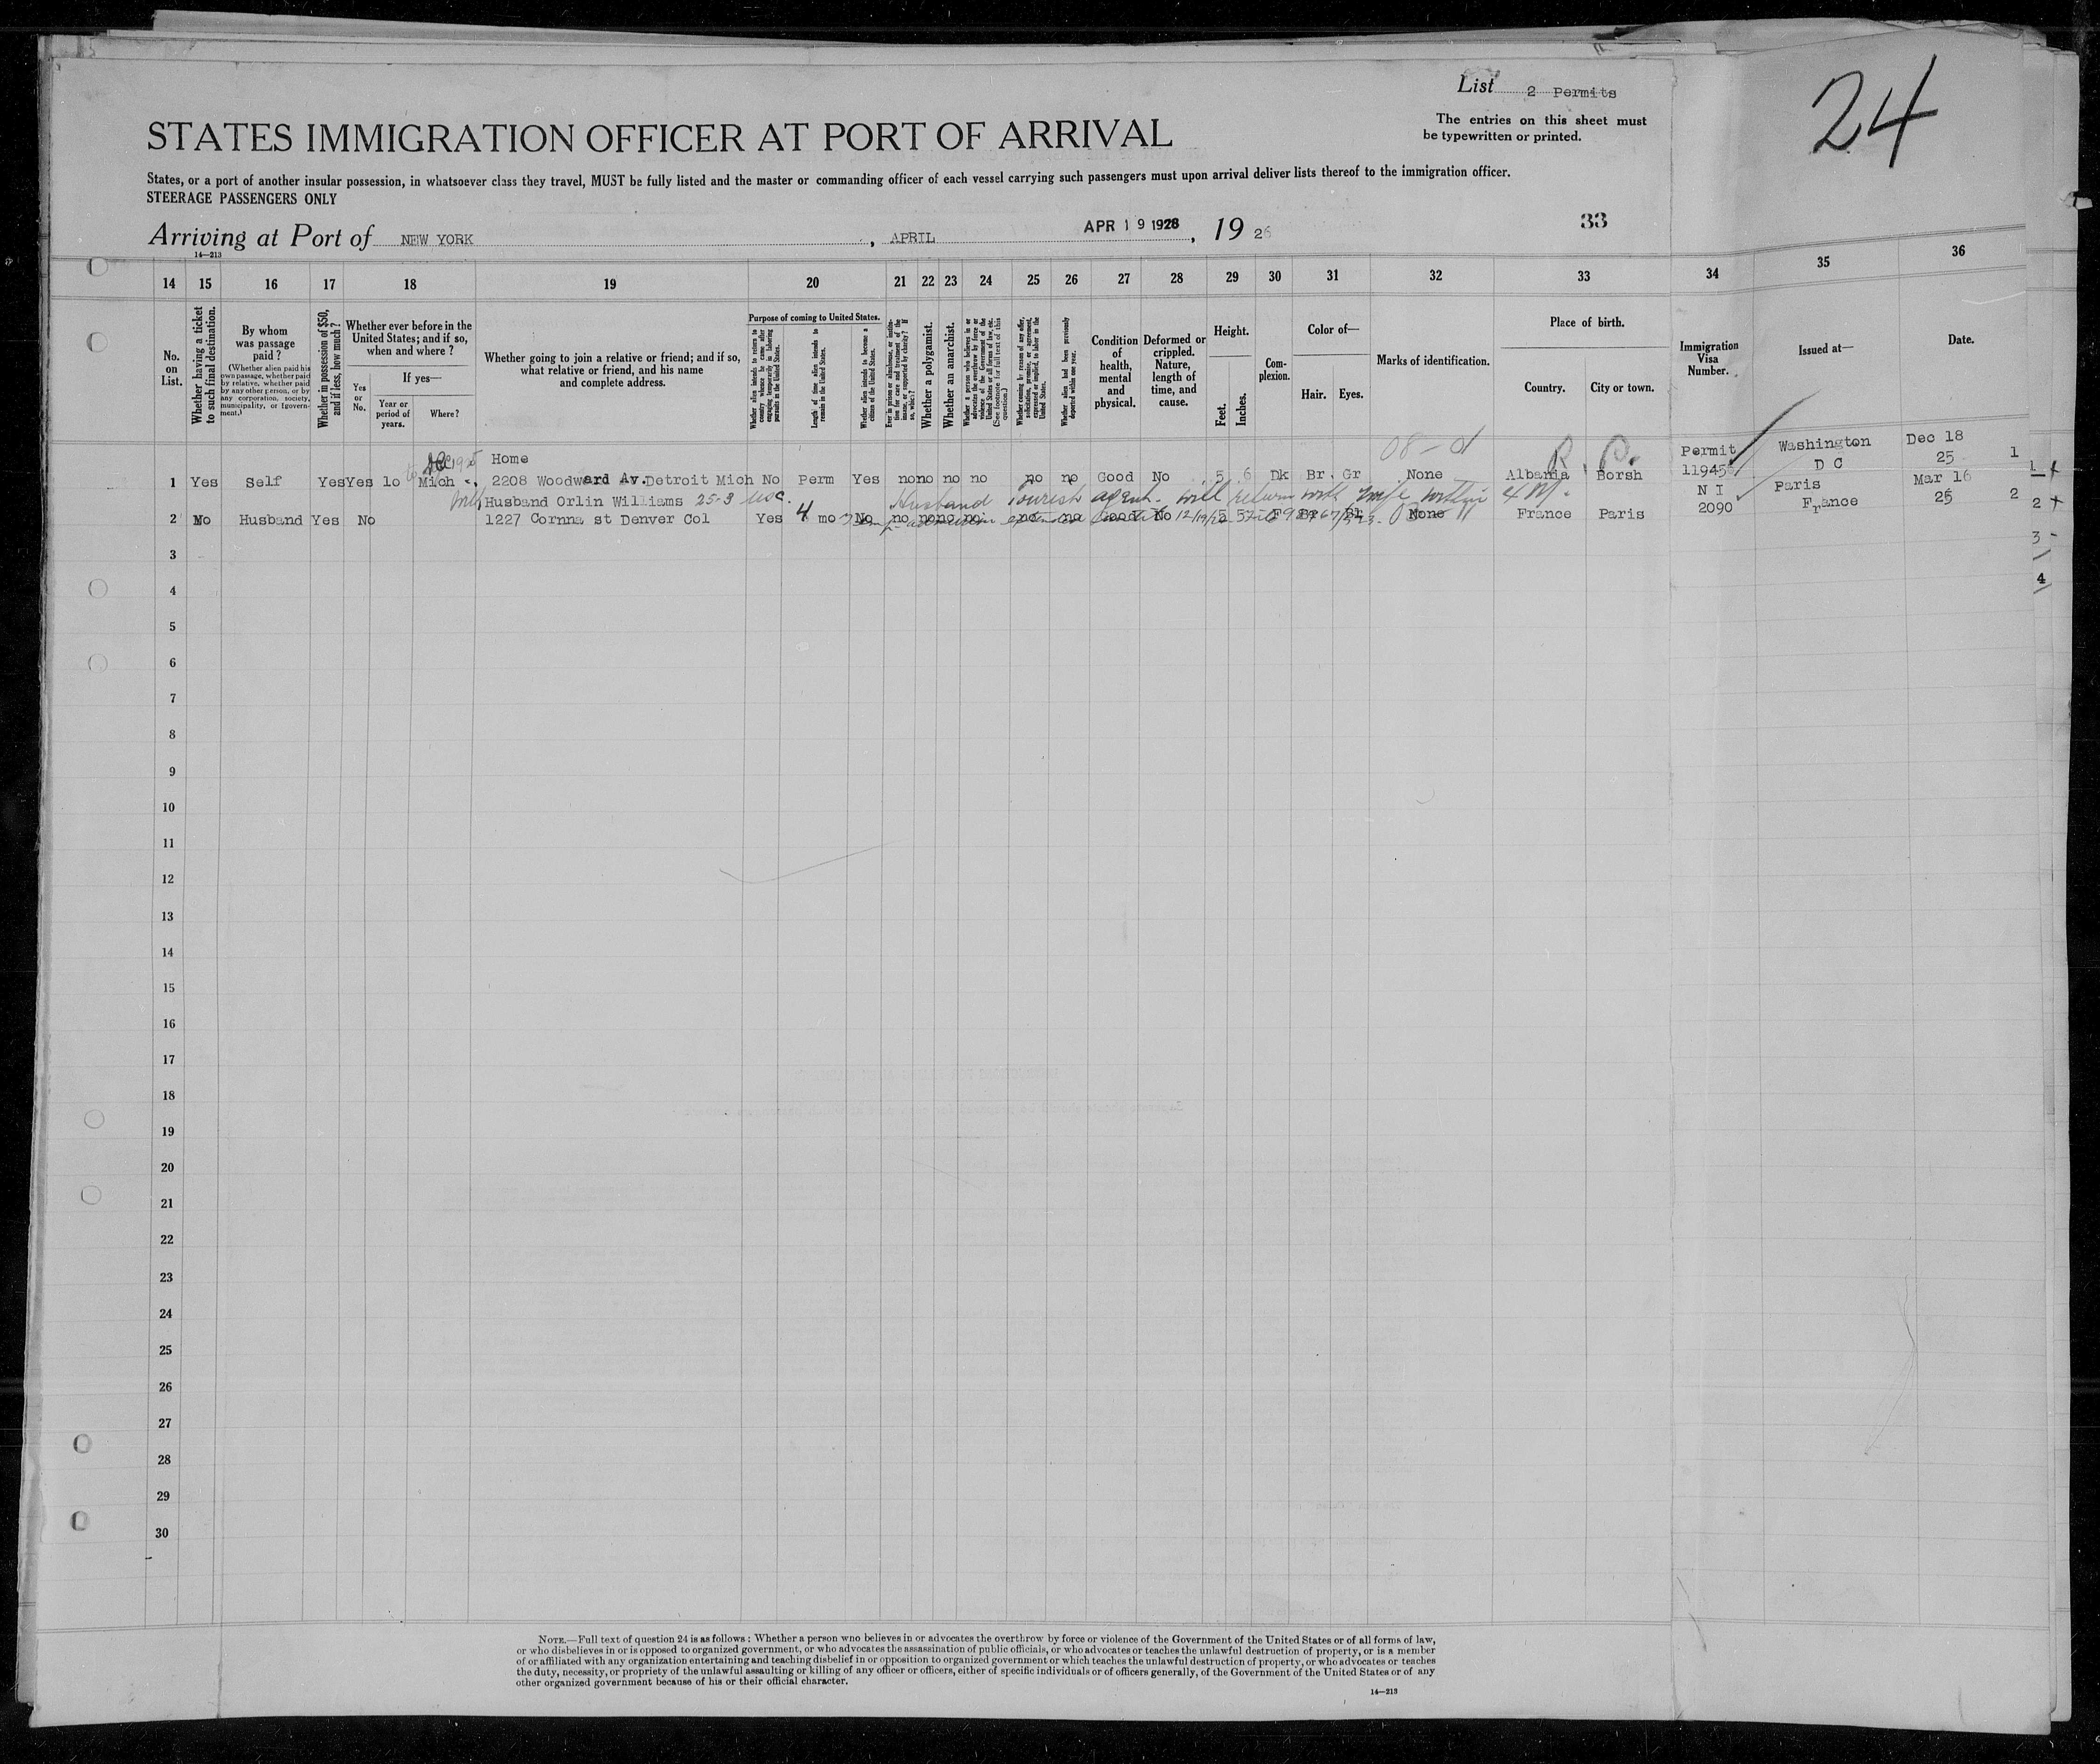 List 2 Permits
24
The entries on this sheet must
be typewritten or printed.
STATES IMMIGRATION OFFICER AT PORT OF ARRIVAL
States, or a port of another insular possession, in whatsoever class they travel, MUST be fully listed and the master or commanding officer of each vessel carrying such passengers must upon arrival deliver lists thereof to the immigration officer.
STEERAGE PASSENGERS ONLY
33
Arriving at Port of NEW YORK, APRIL APR 19 1926, 19 26
14—213
14 15 16 17 18 19 20 21 22 23 24 25 26 27 28 29 30 31 32 33 34 35 36
No. on List.
Whether having a ticket to such final destination.
By whom was passage paid?
(Whether alien paid his own passage, whether paid by relative, whether paid by any other person, or by any corporation, society, municipality, or government.)
Whether in possession of $50, and if less, how much?
Whether ever before in the United States; and if so, when and where?
Yes or No.
If yes—
Year or period of years.
Where?
Whether going to join a relative or friend; and if so, what relative or friend, and his name and complete address.
Purpose of coming to United States.
Whether alien intends to return to country whence he came after engaging temporarily in laboring pursuits in the United States.
Length of time alien intends to remain in the United States.
Whether alien intends to become a citizen of the United States.
Ever in prison or almshouse, or institution for care and treatment of the insane, or supported by charity? If so, which?
Whether a polygamist.
Whether an anarchist.
Whether a person who believes in or advocates the overthrow by force or violence of the Government of the United States or all forms of law, etc. (See footnote for full text of this question.)
Whether coming by reason of any offer, solicitation, promise, or agreement, expressed or implied, to labor in the United States.
Whether alien had been previously deported within one year.
Condition of health, mental and physical.
Deformed or crippled. Nature, length of time, and cause.
Height.
Feet.
Inches.
Complexion.
Color of—
Hair. Eyes.
Marks of identification.
Place of birth.
Country. City or town.
Immigration Visa Number.
Issued at—
Date.
08-d
R. P.
Dec 1925 Home Permit Washington Dec 18 1
1 Yes Self Yes Yes 10 Mich 2208 Woodward Av. Detroit Mich No Perm Yes no no no no no no Good No 5 6 Dk Br Gr None Albania Borsh 11945 D C 25
Husband Orlin Williams 25-3 USC. Husband tourist agent. Will return with wife within 4 M. N I Paris Mar 16 2
2 No Husband Yes No 1227 Cornna st Denver Col Yes 4 mo No no no no no no no Good No 5 Br Bl None France Paris 2090 France 25
1
2
3
4
3
4
5
6
7
8
9
10
11
12
13
14
15
16
17
18
19
20
21
22
23
24
25
26
27
28
29
30
NOTE.—Full text of question 24 is as follows: Whether a person who believes in or advocates the overthrow by force or violence of the Government of the United States or of all forms of law,
or who disbelieves in or is opposed to organized government, or who advocates the assassination of public officials, or who advocates or teaches the unlawful destruction of property, or is a member
of or affiliated with any organization entertaining and teaching disbelief in or opposition to organized government or which teaches the unlawful destruction of property, or who advocates or teaches
the duty, necessity, or propriety of the unlawful assaulting or killing of any officer or officers, either of specific individuals or of officers generally, of the Government of the United States or of any
other organized government because of his or their official character.
14—213